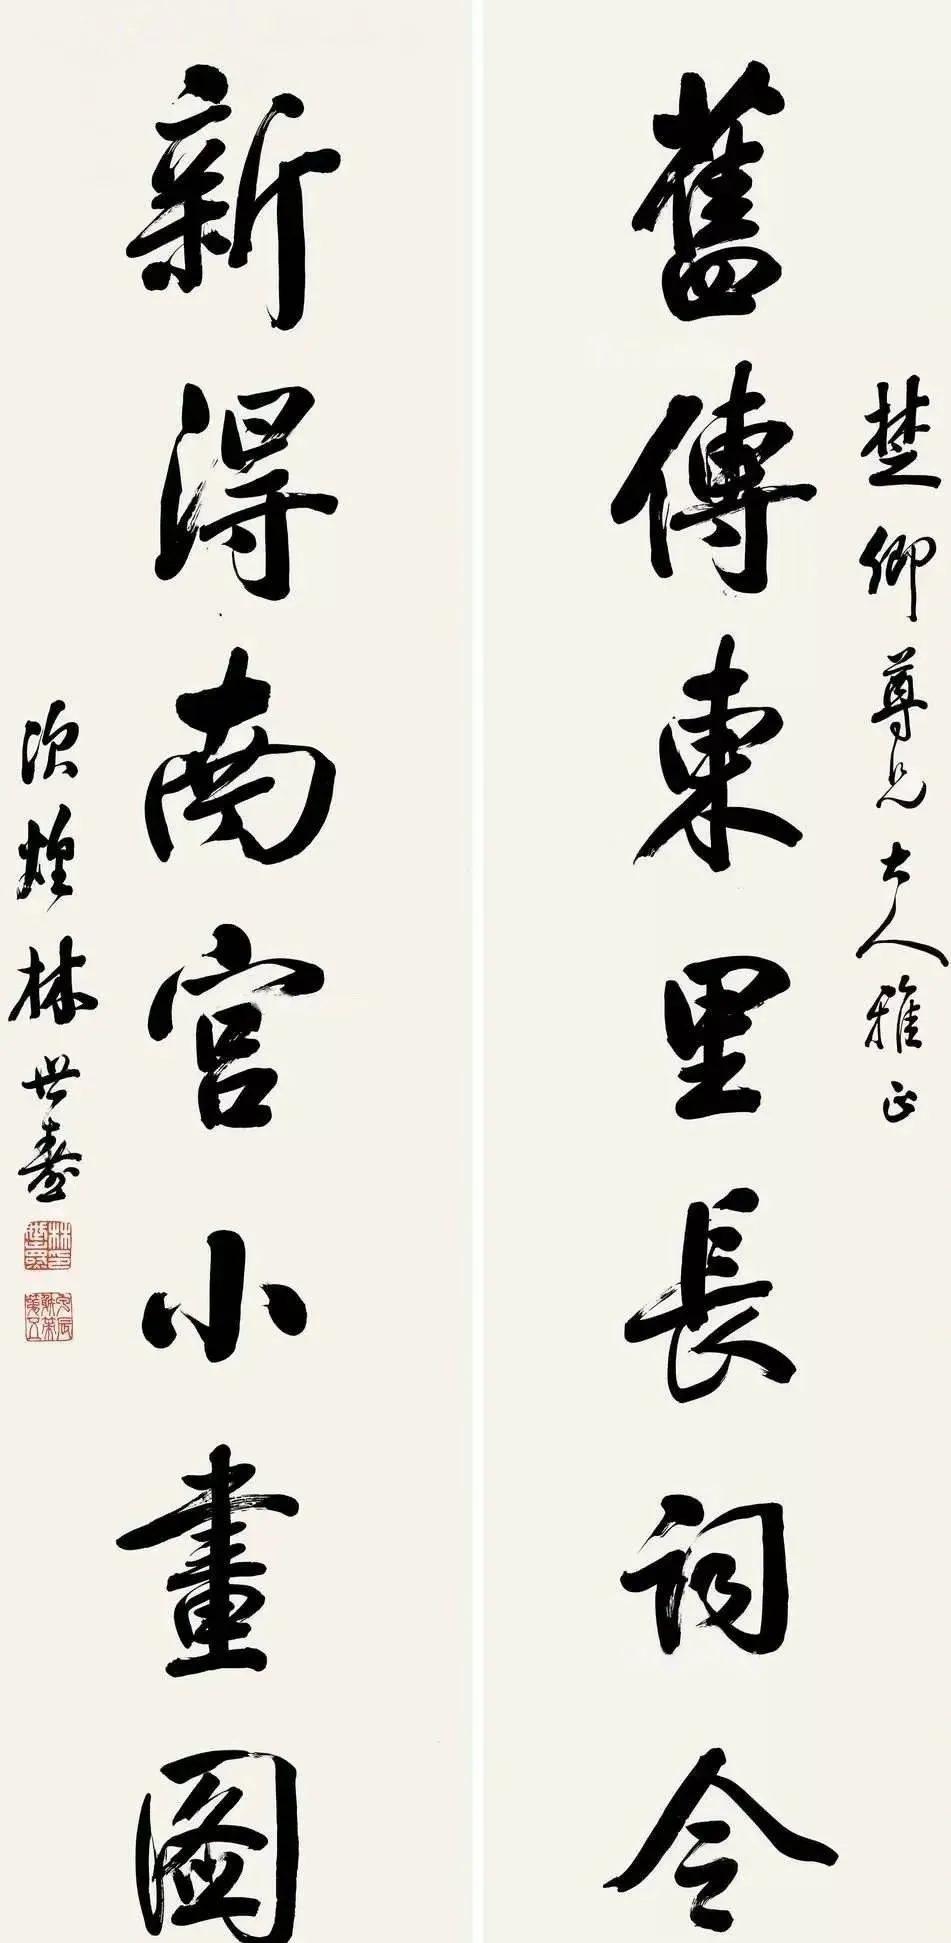 楚卿尊兄大人雅正
舊傳東里長詞令
新得南宫小畫圖
次煌林世燾